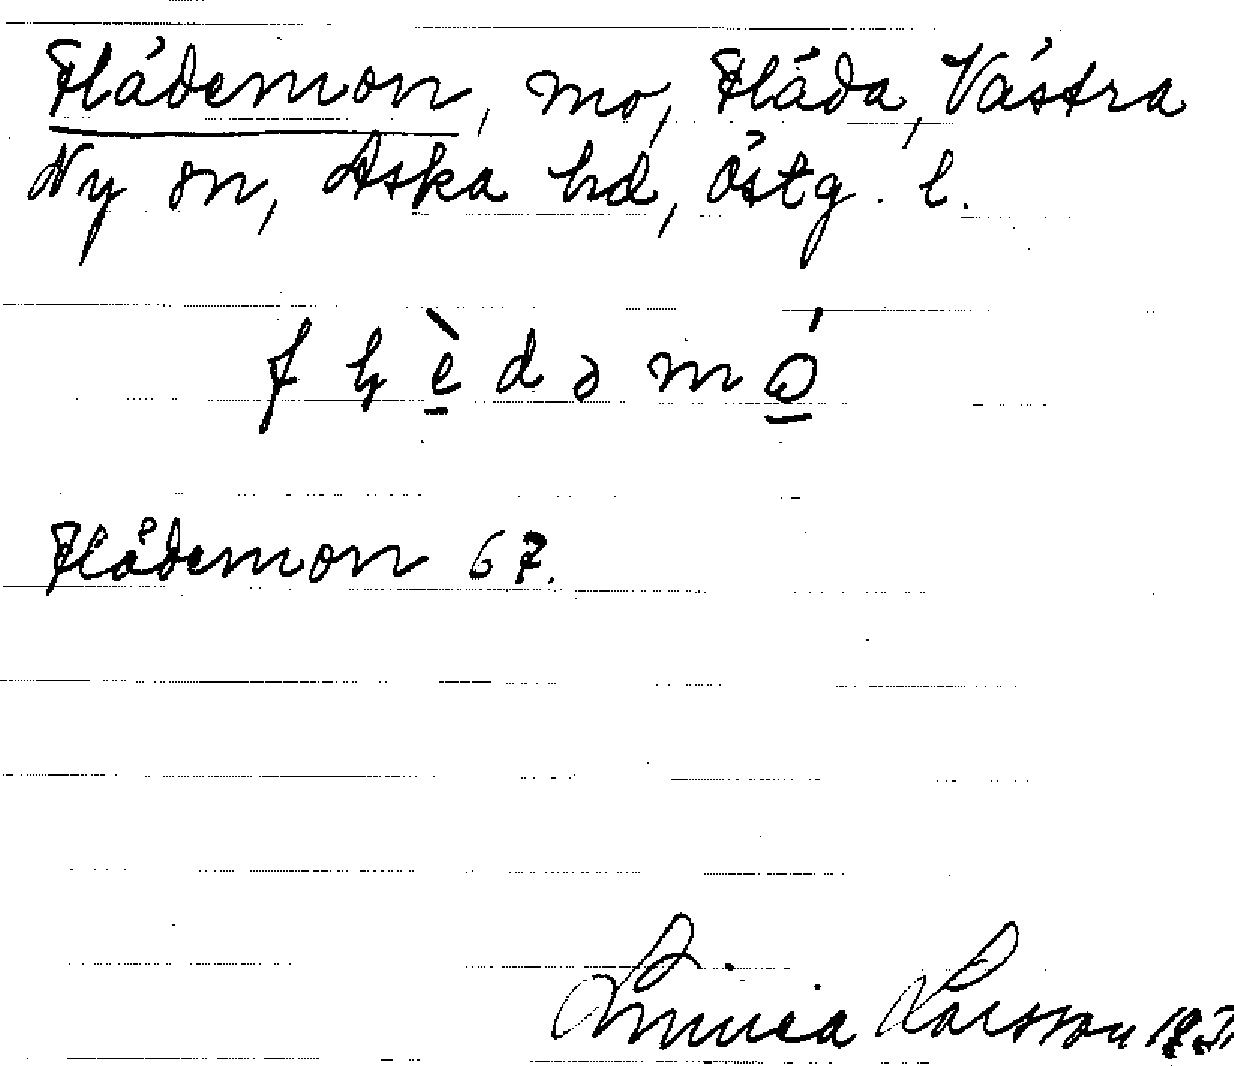 Flådemon, mo, Flåda, Västra
Ny sn, Aska hd, Östg. l.
Flådemon 67.
Linnea Larsson